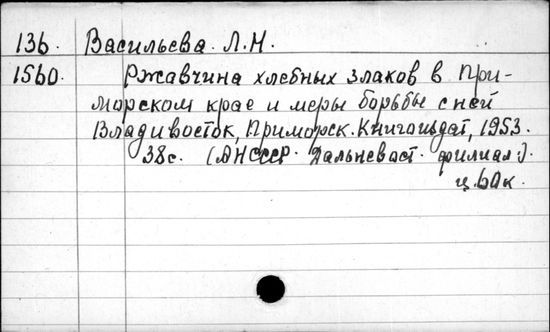 136. Васильева. Л.Н.
1560. Ржавчина хлебных злаков в При-
морском крае и меры борьбы с ней
Владивосток, Приморск. Книгоиздат, 1953.
38с. (АН СССР. Дальневост. филиал).
ц. 60к.